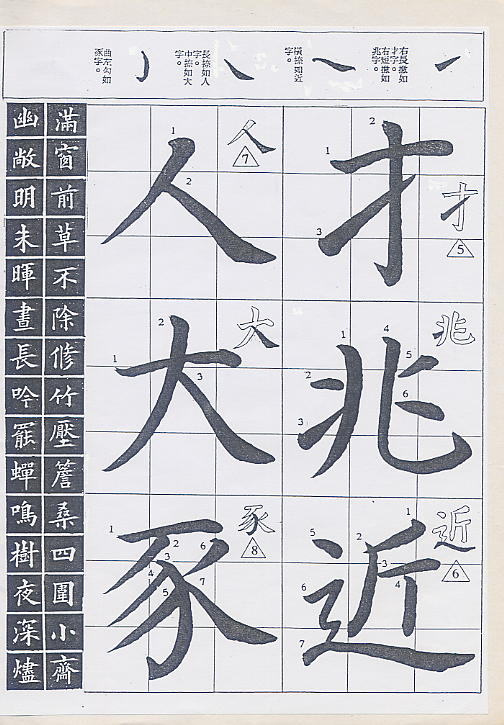 右長撇如
才字。
右短撇如
兆字。
橫捺如近
字。
長捺如人
字。
中捺如大
字。
曲左勾如
豕字。
才
1
2
3
才
5
兆
1
2
3
4
5
6
兆
近
1
2
3
4
5
6
7
近
6
人
1
2
人
7
大
1
2
3
大
豕
1
2
3
4
5
6
7
豕
8
滿窗前草不除修竹壓簷桑四圍小齋
幽敞明朱暉晝長吟罷蟬鳴樹夜深燼